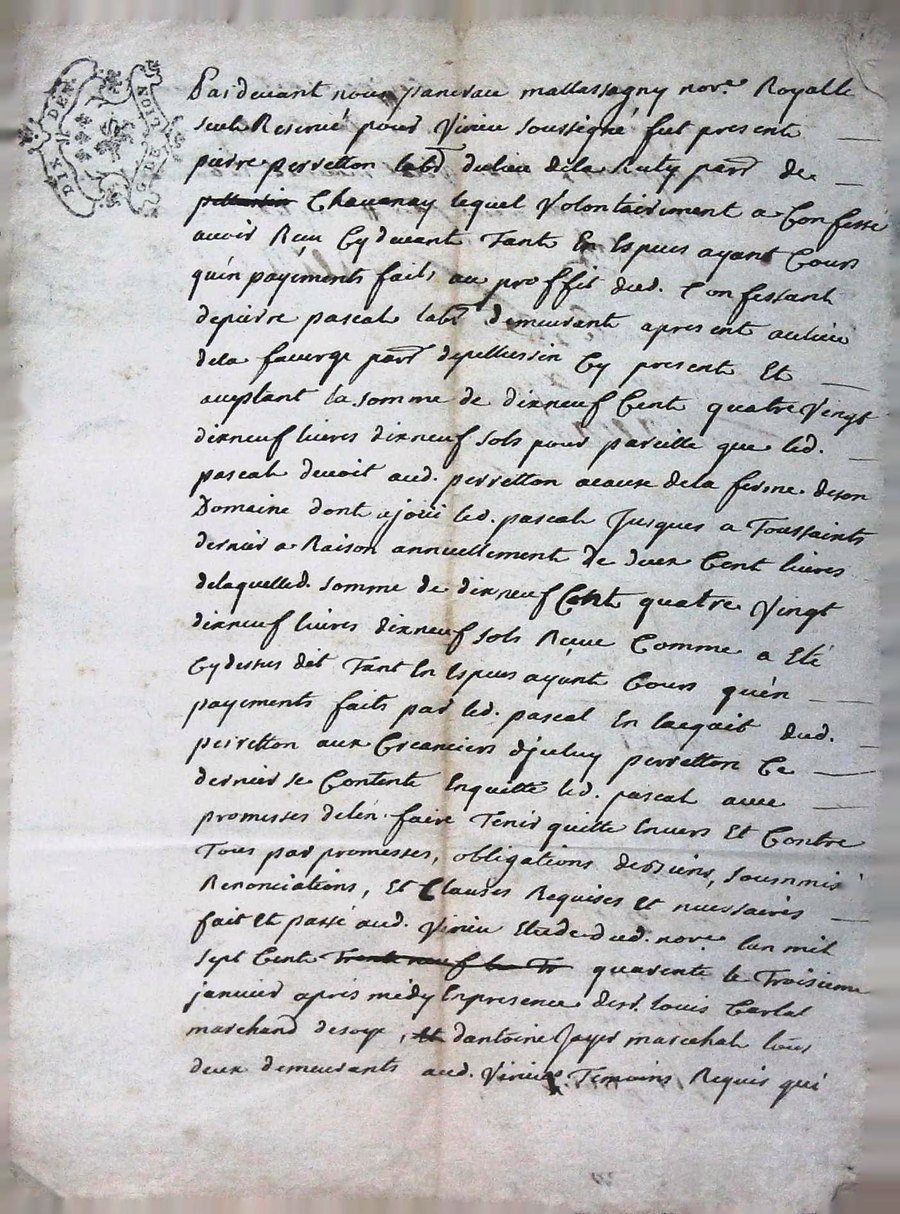 DIX DEN.
LION
Pardevant nous pancrace mallassagny nore. Royalle
seul Reservé pour Virieu soussigné fut present
pierre perretton labr. du lieu dela Ruty parr. de
Chavanay lequel Volontairement a Confessé
avoir Receu Cy devant Tant En Especes ayant Cours
quén payements faits au proffit dud. Confessant
depierre pascal labr. demeurant apresent aulieu
dela faverge parr. depellussin Cy present Et
aceptant la somme de dixneuf Cent quatre Vingt
dixneuf livres dixneuf sols pour pareille que led.
pascal devoit aud. perretton acause dela ferme deson
Domaine dont a joüi led. pascal Jusques a Toussaints
dernier a Raison annuellement de deux Cent livres
delaquelled. somme de dixneuf Cent quatre Vingt
dixneuf livres dixneuf sols Reçue Comme a Eté
Cydessus dit Tant En Especes ayant Cours quén
payements faits par led. pascal En lacquit dud.
perretton aux Creanciers perretton Ce
dernier se Contente Enquitte led. pascal avec
promesses delén faire Tenir quitte Envers Et Contre
Tous par promesses, obligations desbiens, soummis
Renonciations, Et Clauses Requises Et necessaires
fait Et passé aud. Virieu Etude dud. nore. lan mil
sept Cent Trente neuf le Tr quarente le Troisieme
janvier apres médy Enpresence desr. Louis Carlat
marchand desoye, Et dantoine Jayer marechal tous
deux demeurants aud. Virieu Temoins Requis qui